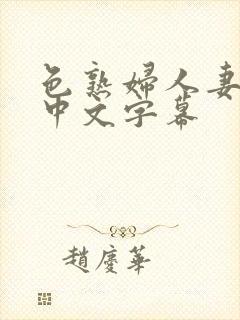 色熟婦人妻
中文字幕
趙慶華